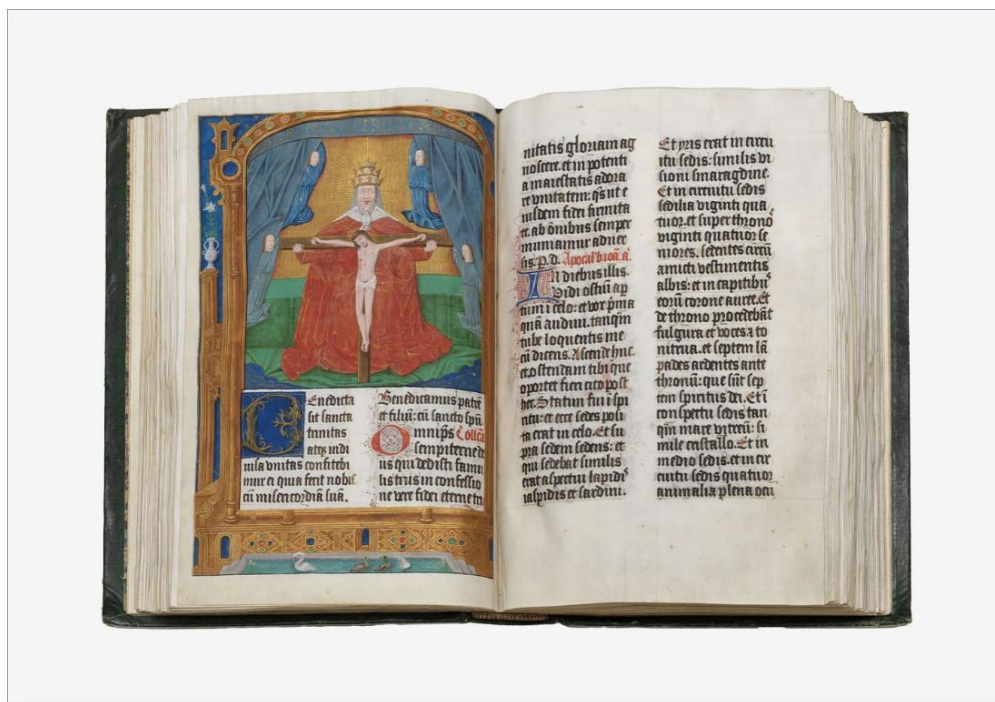 Enedicta
sit sancta
trinitas
atq; indi
uisa vnitas confitebi
mur ei quia fecit nobis
cū misericordiā suā.
Benedicamus patrē
et filiū: cū sancto spū.
Omnip̄s Collcā
sempiterne d
us qui dedisti famu
lis tuis in confessio
ne vere fidei eterne tri
nitatis gloriam ag
noscere. et in potenti
a maiestatis adora
re vnitatem: qs̄ ut e
iusdem fidei firmita
te. ab ōnibus semper
muniamur aduer
sis. P. d. Apocal' beati. a.
In diebus illis.
Vidi ostiū ap
tum i celo: et vox p̄ma
quā audiui. tanqm̄
tube loquentis me
cū dicens. Ascende huc.
et ostendam tibi que
oportet fieri cito post
hec. Statim fui i spi
ritu: et ecce sedes posi
ta erat in celo. Et su
pra sedem sedens: et
qui sedebat similis
erat aspectui lapidis
iaspidis et sardini.
Et yris erat in circu
itu sedis: similis vi
sioni smaragdine.
Et in circuitu sedis
sedilia viginti qua
tuor. et super thronos
viginti quatuor se
niores. sedentes circū
amicti vestimentis
albis: et in capitib'
eorū corone auree. Et
de throno procedebāt
fulgura et voces ⁊ to
nitrua. et septem lā
pades ardentes ante
thronū: que sūt sep
tem spiritus dei. Et ī
conspectu sedis tan
qm̄ mare vitreū: si
mile cristallo. Et in
medio sedis. et in cir
cuitu sedis quatuor
animalia plena ocu